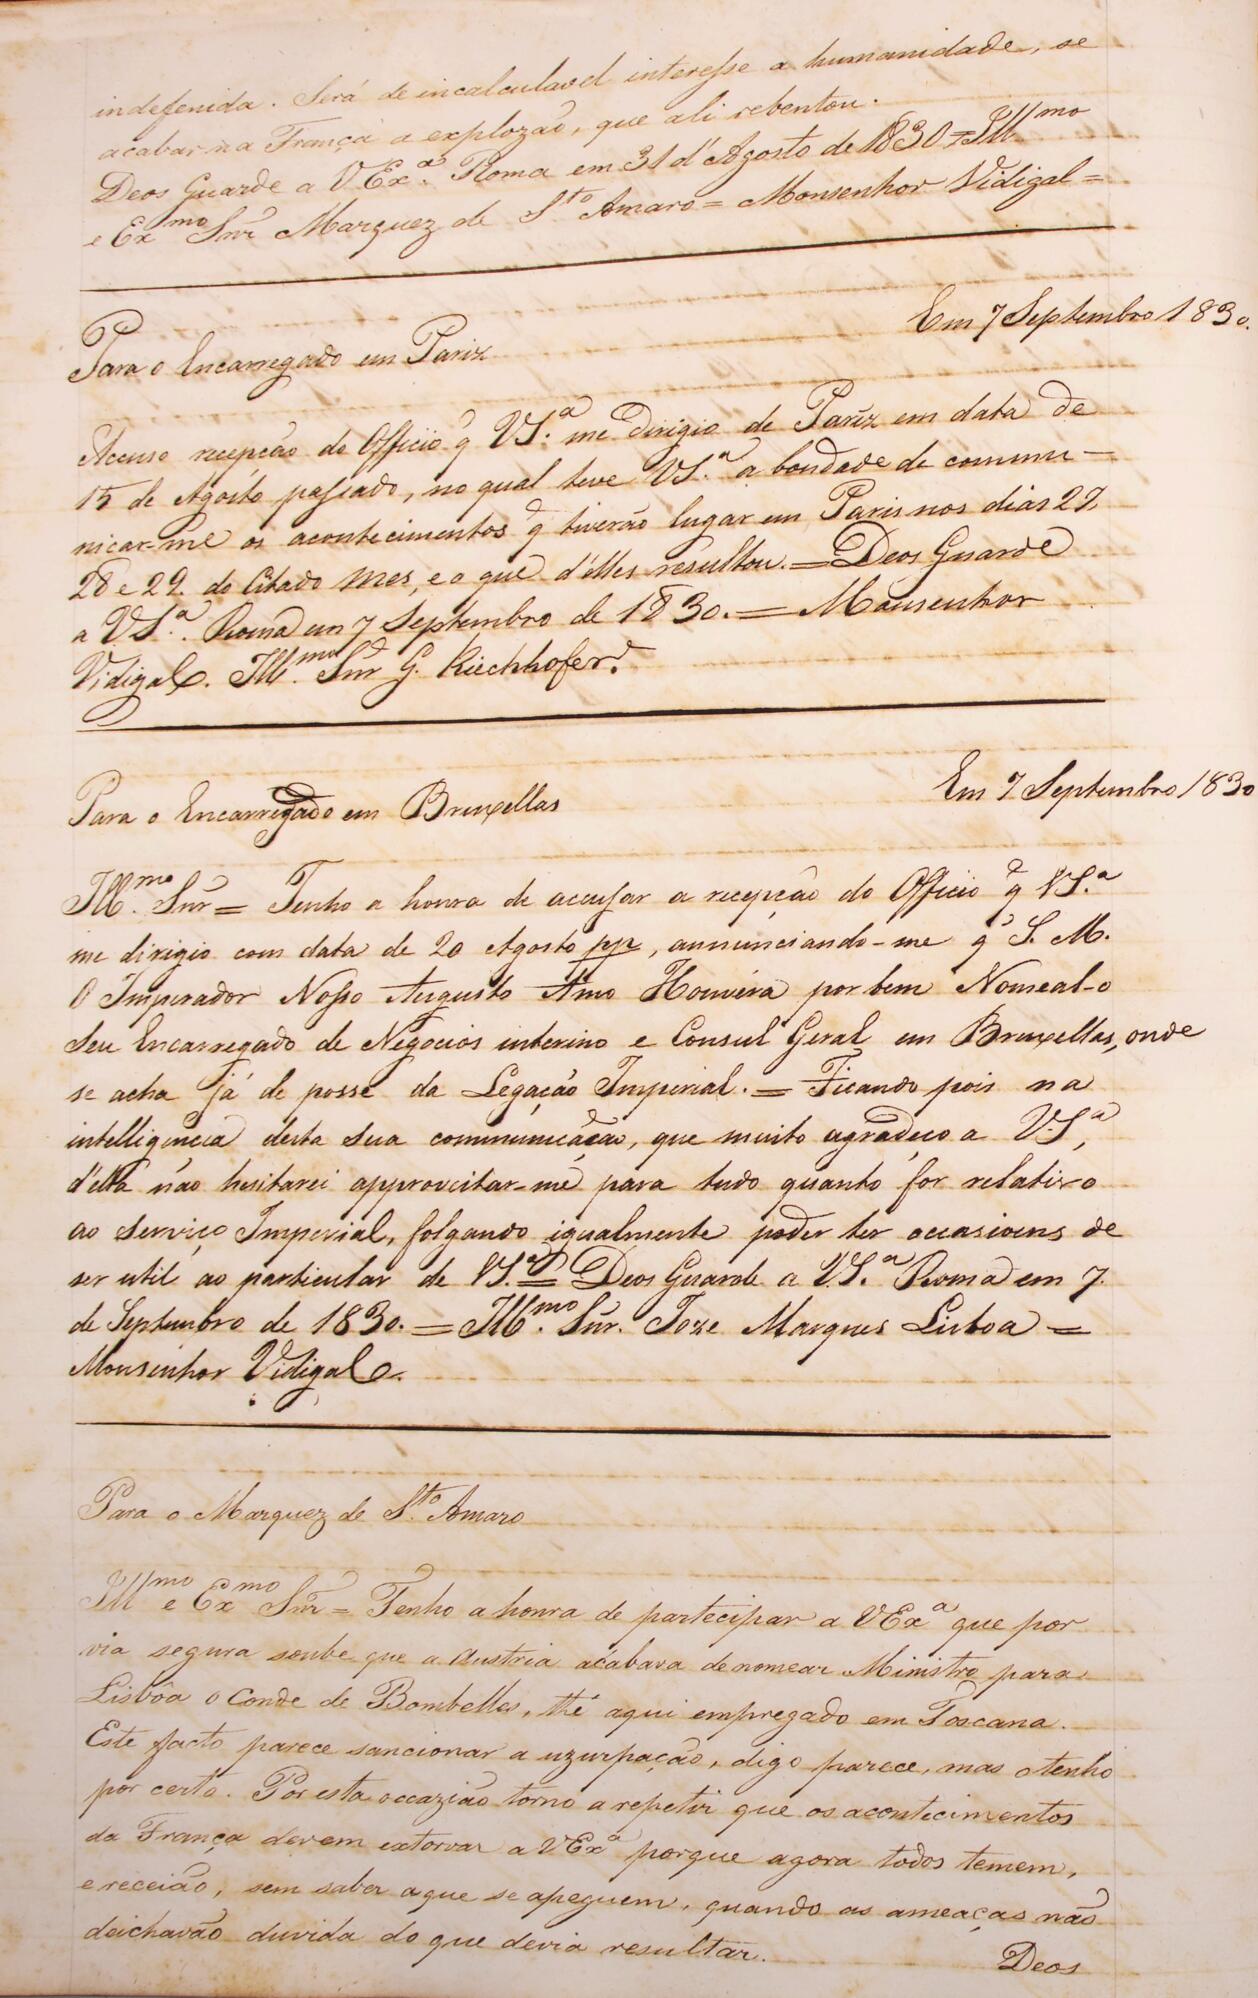 indefenida. Será de incalculavel interesse a humanidade, se
acabar na França a explozão, que ali rebentou.
Deos Guarde a VExª. Roma em 31 d'Agosto de 1830 = Illmo
e Exmo Snr Marquez de Sto Amaro = Monsenhor Vidigal =
Em 7 Septembro 1830.
Para o Encarregado em Pariz
Accuso recepção do Officio q̃ VSª. me dirigio de Pariz em data de
15 de Agosto passado, no qual teve VSª. a bondade de commu-
nicar-me os acontecimentos q̃ tiverão lugar em Paris nos dias 27,
28 e 29. do Citado mes, e o que d'elles resultou. = Deos Guarde
a VSª. Roma em 7 Septembro de 1830. = Monsenhor
Vidigal. Illmo. Snr G. Kiechhofer.
Em 7 Septembro 1830
Para o Encarregado em Bruxellas
Illmo. Snr = Tenho a honra de accusar a recepção do Officio q̃ VSª
me dirigio com data de 20 Agosto pp, annunciando-me q̃ S. M.
O Imperador Nosso Augusto Amo Houvéra por bem Nomeal-o
Seu Encarregado de Negocios interino e Consul Geral em Bruxellas, onde
se acha já de posse da Legação Imperial. = Ficando pois na
intelligencia desta sua communicação, que muito agradeço a VSª,
d'ella não hesitarei approveitar-me para tudo quanto for relativo
ao serviço Imperial, folgando igualmente poder ter occasioens de
ser util ao particular de VSª. = Deos Guarde a VSª. Roma em 7
de Septembro de 1830. = Illmo. Snr. Joze Marques Lisboa =
Monsenhor Vidigal.
Para o Marquez de Sto. Amaro
Illmo e Exmo Snr = Tenho a honra de partecipar a VExª que por
via segura soube que a Austria acabava de nomear Ministro para
Lisbôa o Conde de Bombelles, thé aqui empregado em Toscana.
Este facto parece sancionar a uzurpação, digo parece, mas o tenho
por certo. Por esta occazião torno a repetir que os acontecimentos
da França devem extorvar a VExª porque agora todos temem,
e receião, sem saber aque se apeguem, quando as ameaças não
deichavão duvida do que devia resultar.
Deos